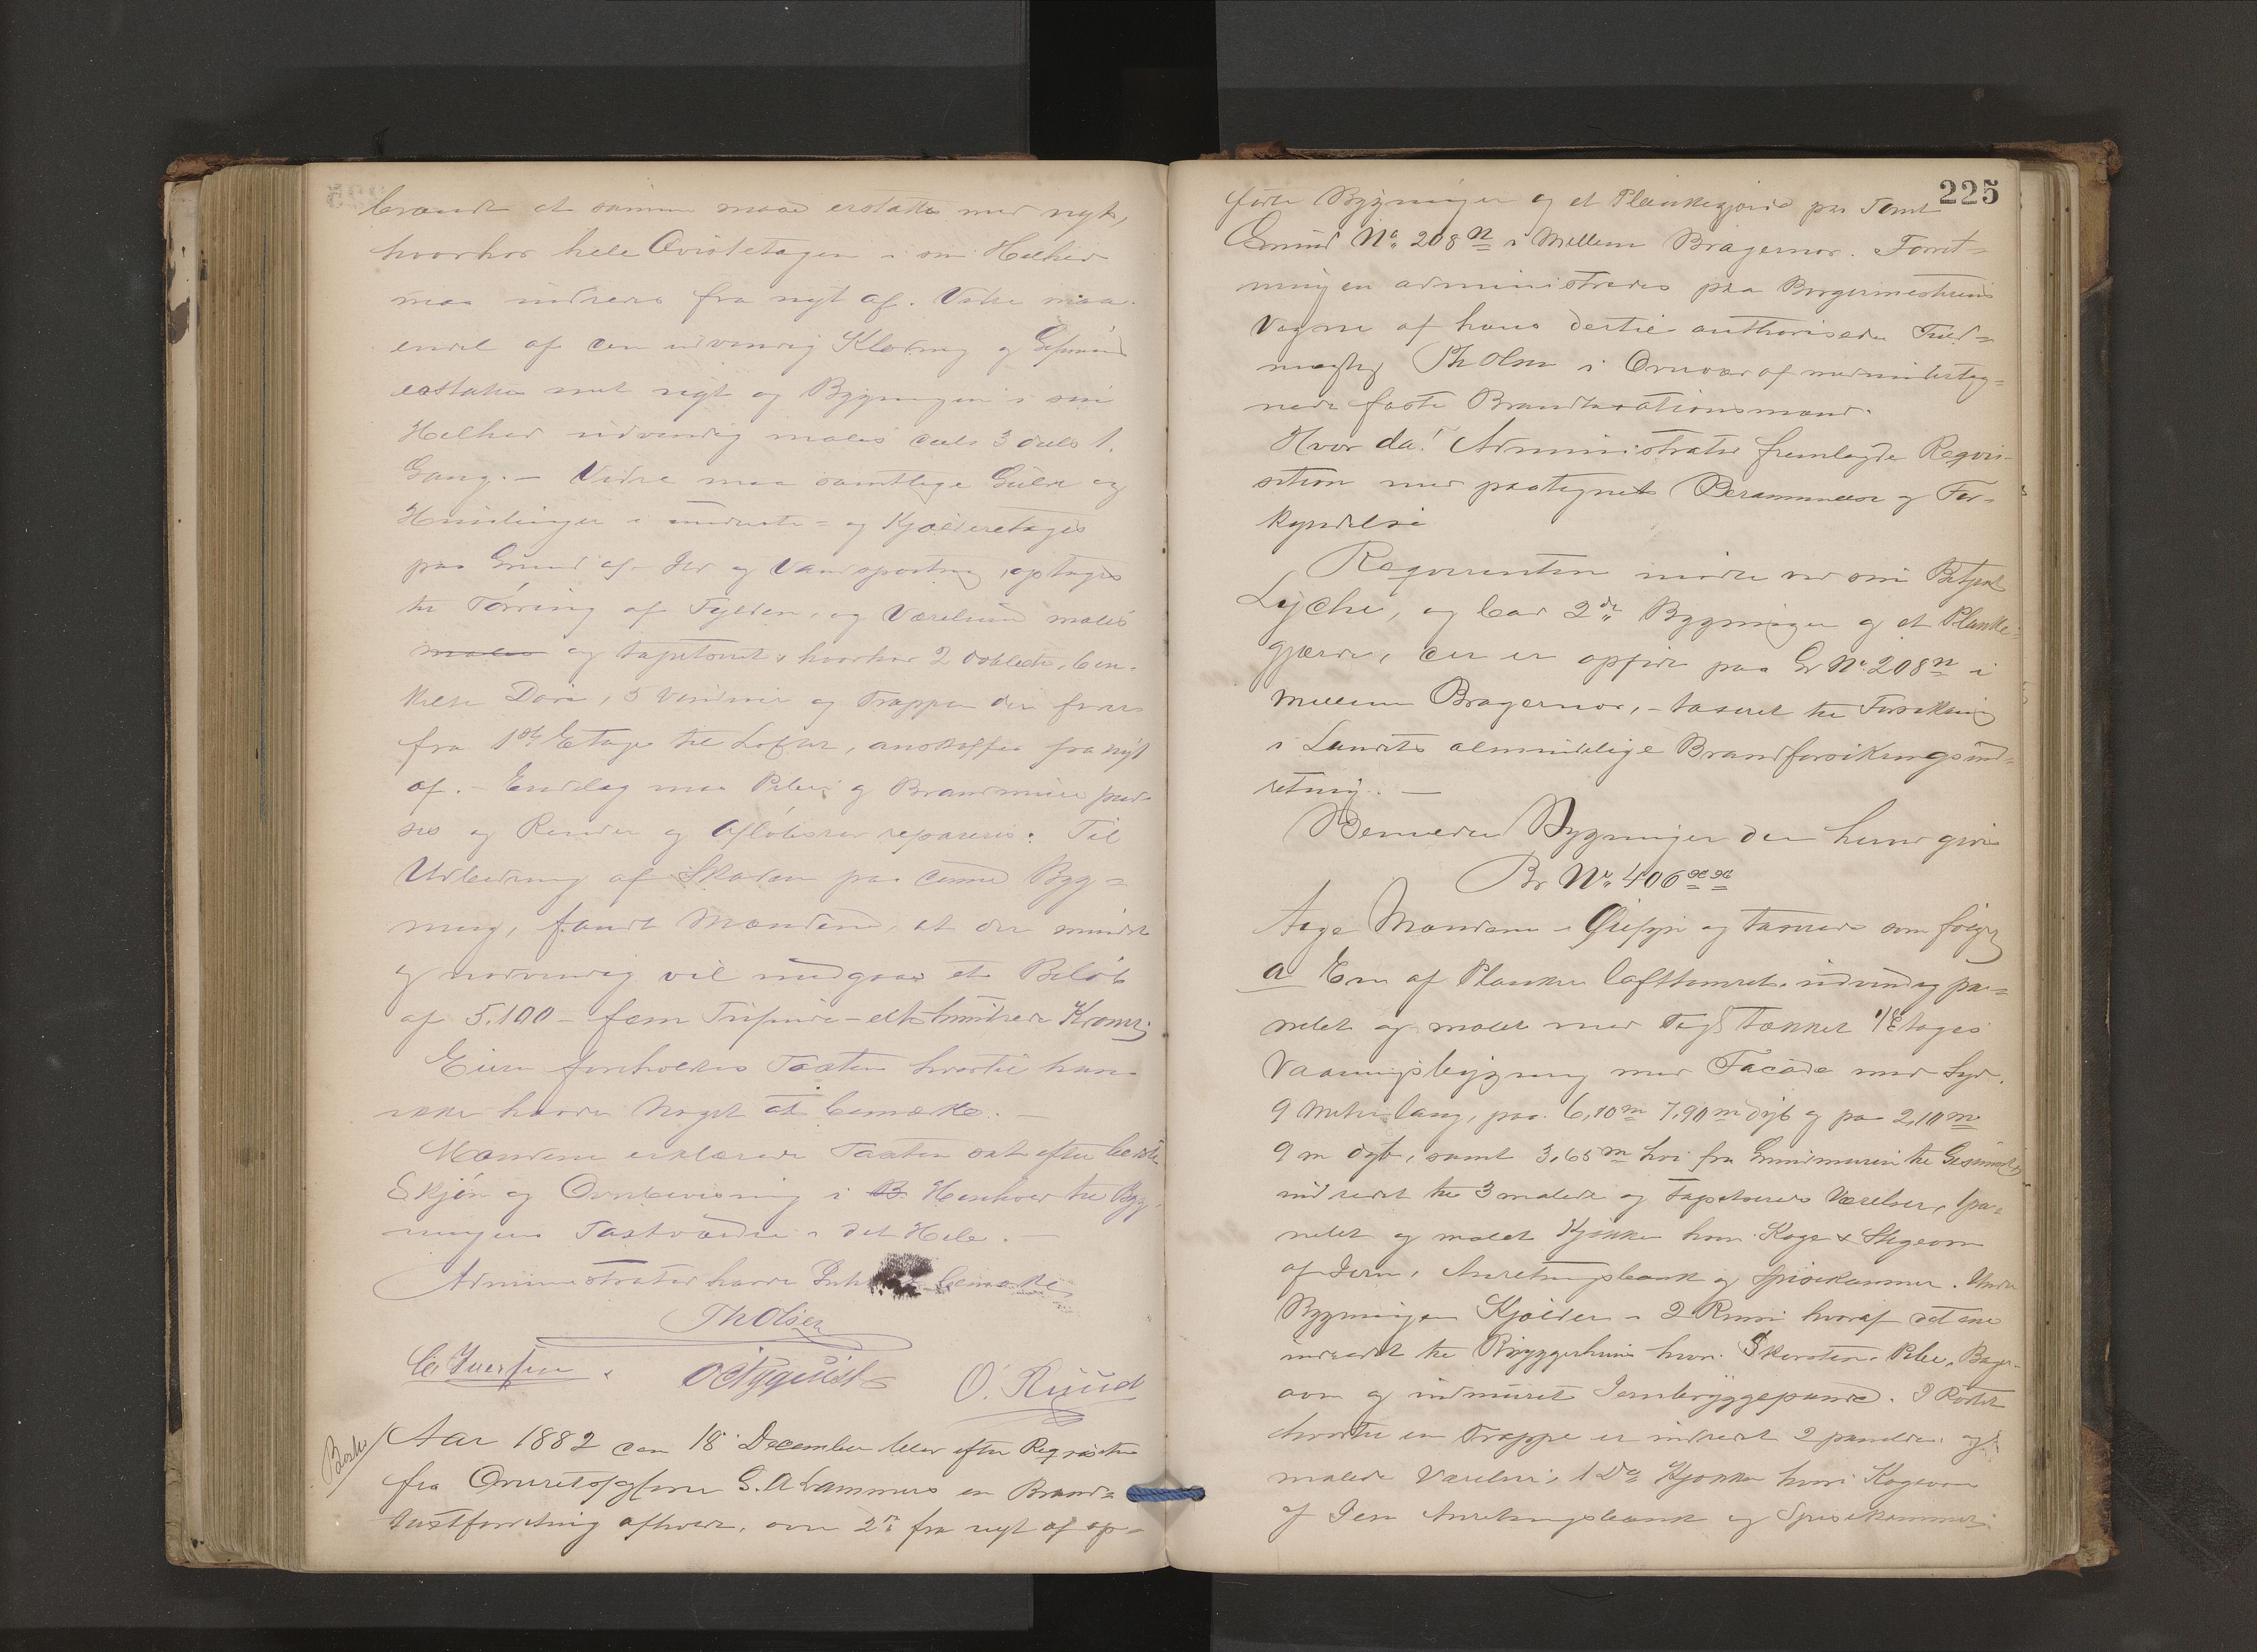 brændt at samme maa erstattes med nyt,
hvorhos hele Qvistetagen i sin Helhed
maa indredes fra nyt af. Videre maa
endel af den udvendig Klædning og Gesims
erstattes med nyt og Bygningen i sin
Helhed udvendig males dels 3 dels 1.
Gang. — Videre maa samtlige Gulve og
Himlinger i underste= og Kjælderetages
paa Grund af Ild og Vandsprøitning, optages
til Tørring af Fylden, og Værelserne males
males og tapetseret, hvorhos 2 doblede, 6 en-
kelte Døre, 5 Vinduer og Trappen der fører
fra 1ste Etage til Loftet, anskaffes fra nyt
af. — Endelig maa Piber og Brandmure pud-
ses og Render og Afløbsrør repareres. Til
Udbedring af Skaden paa denne Byg=
ning, fandt Mændene, at der mindst
og nødvendig vil medgaa et Beløb
af 5,100 — fem Tusinde — et hundrede Kroner
Eieren foreholdtes Taxten hvortil han
ikke havde Noget at bemærke. —
Mændene erklærede Taxten sat efter bedste
Skjøn og Overbevisning i B. Henhold til Byg-
ningens Taxtværdie i det Hele. —
Administrator havde Intet at bemærke
Th Olsen
C Iversen . O Nyquist O. Ruud
Besk
Aar 1882 den 18 December blev efter Reqvisition
fra Overretssagfører G. A Lammers en Brand=
taxtforretning afholdt, over 2de fra nyt af op=
225
førte Bygninger og et Plankegjerde paa Tomt
Grund No. 208n i Mellem Bragernes. Forret=
ningen administreredes paa Borgermesterens
Vegne af hans dertil authoriserede Fuld=
mægtig Th Olsen i Overvær af medunderteg=
nede faste Brandtaxationsmænd.
Hvor da! Administrator fremlagde Reqvi-
sition med paategnet Berammelse og For-
kyndelse
Reqvirenten mødte ved sin Betjent
Lyche, og bad 2de Bygninger og et Planke-
gjærde, der er opført paa Gr No. 208n i
mellem Bragernes, — taxeret til Forsikring
i Landets almindelige Brandforsikringsind=
retning. —
Benævnte Bygninger der herved gives
Br No. 406ææ
toge Mændene i Øiesyn og taxerede som følger
a En af Planker lafttømret, indvendig pa=
nelet og malet med Tegl tækket 1 Etages
Vaaningsbygning med Facade mod Syd.
9 Meter lang, paa 6,90m 7,90m dyb og paa 2,10m
9 m dyb, samt 3,65m høi fra Grundmuren til Gesimsen
indredet til 3 malede og tapetserede Værelser, 1 pa=
nelet og malet Kjøkken hvori Koge & Stegeovn
af Jern, Anretningsbænk og Spisekammer. Under
Bygningen Kjælder i 2 Rum hvoraf det ene
indredet til Bryggerhus hvori Skorsten. Pibe, Bager-
ovn og indmuret Jernbryggepande. I Røstet
hvortil en Trappe er indredet 2 panelede og
malede Værelser, 1 Do Kjøkken hvori Kogeovn
af Jern Anretningsbænk og Spisekammer